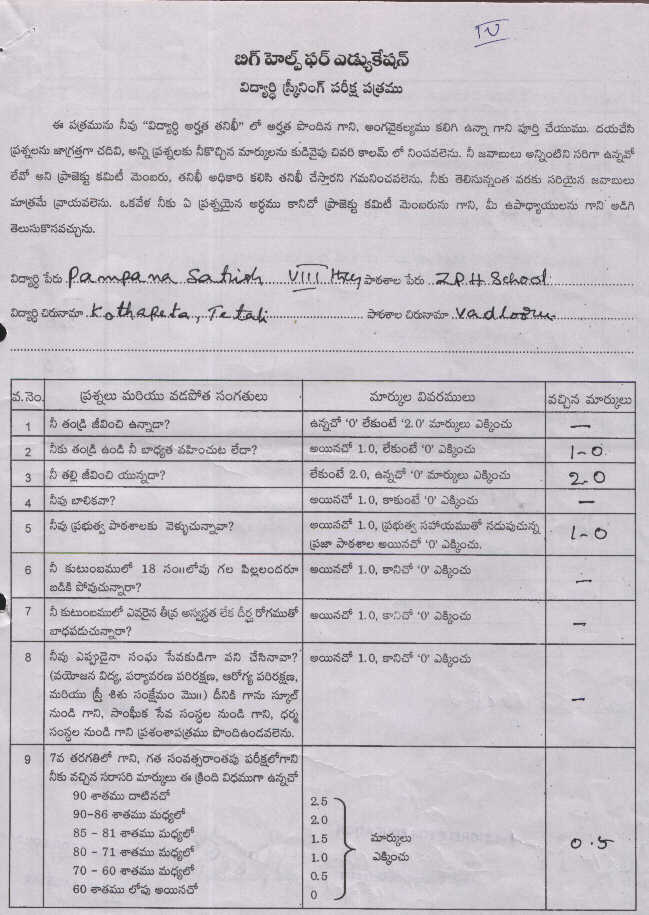 IV
బిగ్ హెల్ప్ ఫర్ ఎడ్యుకేషన్
విద్యార్థి స్క్రీనింగ్ పరీక్ష పత్రము
ఈ పత్రమును నీవు "విద్యార్థి అర్హత తనిఖీ" లో అర్హత పొందిన గాని, అంగవైకల్యము కలిగి ఉన్నా గాని పూర్తి చేయుము. దయచేసి
ప్రశ్నలను జాగ్రత్తగా చదివి, అన్ని ప్రశ్నలకు నీకొచ్చిన మార్కులను కుడివైపు చివరి కాలమ్ లో నింపవలెను. నీ జవాబులు అన్నింటిని సరిగా ఉన్నవో
లేవో అని ప్రాజెక్టు కమిటీ మెంబరు, తనిఖీ అధికారి కలిసి తనిఖీ చేస్తారని గమనించవలెను. నీకు తెలిసున్నంత వరకు సరియైన జవాబులు
మాత్రమే వ్రాయవలెను. ఒకవేళ నీకు ఏ ప్రశ్నయైన అర్ధము కానిచో ప్రాజెక్టు కమిటీ మెంబరును గాని, మీ ఉపాధ్యాయులను గాని అడిగి
తెలుసుకొనవచ్చును.
విద్యార్థి పేరు Pampana Satish VIII పాఠశాల పేరు Z.P.H School
విద్యార్థి చిరునామా Kothapeta, Tetali పాఠశాల చిరునామా Vadlooru
వ.నెం. ప్రశ్నలు మరియు వడపోత సంగతులు మార్కుల వివరములు వచ్చిన మార్కులు
1 నీ తండ్రి జీవించి ఉన్నాడా? ఉన్నచో '0' లేకుంటే '2.0' మార్కులు ఎక్కించు –
2 నీకు తండ్రి ఉండి నీ బాధ్యత వహించుట లేదా? అయినచో 1.0, లేకుంటే '0' ఎక్కించు 1-0
3 నీ తల్లి జీవించి యున్నదా? లేకుంటే 2.0, ఉన్నచో '0' మార్కులు ఎక్కించు 2.0
4 నీవు బాలికవా? అయినచో 1.0, కాకుంటే '0' ఎక్కించు –
5 నీవు ప్రభుత్వ పాఠశాలకు వెళ్ళుచున్నావా? అయినచో 1.0, ప్రభుత్వ సహాయముతో నడుపుచున్న 1-0
ప్రజా పాఠశాల అయినచో '0' ఎక్కించు.
6 నీ కుటుంబములో 18 సం॥లోపు గల పిల్లలందరూ అయినచో 1.0, కానిచో '0' ఎక్కించు –
బడికి పోవుచున్నారా?
7 నీ కుటుంబములో ఎవరైన తీవ్ర అస్వస్థత లేక దీర్ఘ రోగముతో అయినచో 1.0, కానిచో '0' ఎక్కించు –
బాధపడుచున్నారా?
8 నీవు ఎప్పుడైనా సంఘ సేవకుడిగా పని చేసినావా? అయినచో 1.0, కానిచో '0' ఎక్కించు
(వయోజన విద్య, పర్యావరణ పరిరక్షణ, ఆరోగ్య పరిరక్షణ,
మరియు స్త్రీ శిశు సంక్షేమం మొ॥) దీనికి గాను స్కూల్ –
నుండి గాని, సాంఘీక సేవ సంస్థల నుండి గాని, ధర్మ
సంస్థల నుండి గాని ప్రశంశాపత్రము పొందిఉండవలెను.
9 7వ తరగతిలో గాని, గత సంవత్సరాంతపు పరీక్షలోగాని
నీకు వచ్చిన సరాసరి మార్కులు ఈ క్రింది విధముగా ఉన్నచో
90 శాతము దాటినచో 2.5
90-86 శాతము మధ్యలో 2.0
85 - 81 శాతము మధ్యలో 1.5 మార్కులు
80 - 71 శాతము మధ్యలో 1.0 ఎక్కించు 0.5
70 - 60 శాతము మధ్యలో 0.5
60 శాతము లోపు అయినచో 0